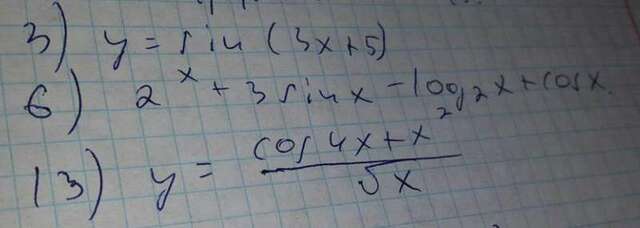 3) y = sin (3x+5)
6) 2^x + 3 sin x - log_2 2x + cos x.
13) y = (cos 4x + x) / √x